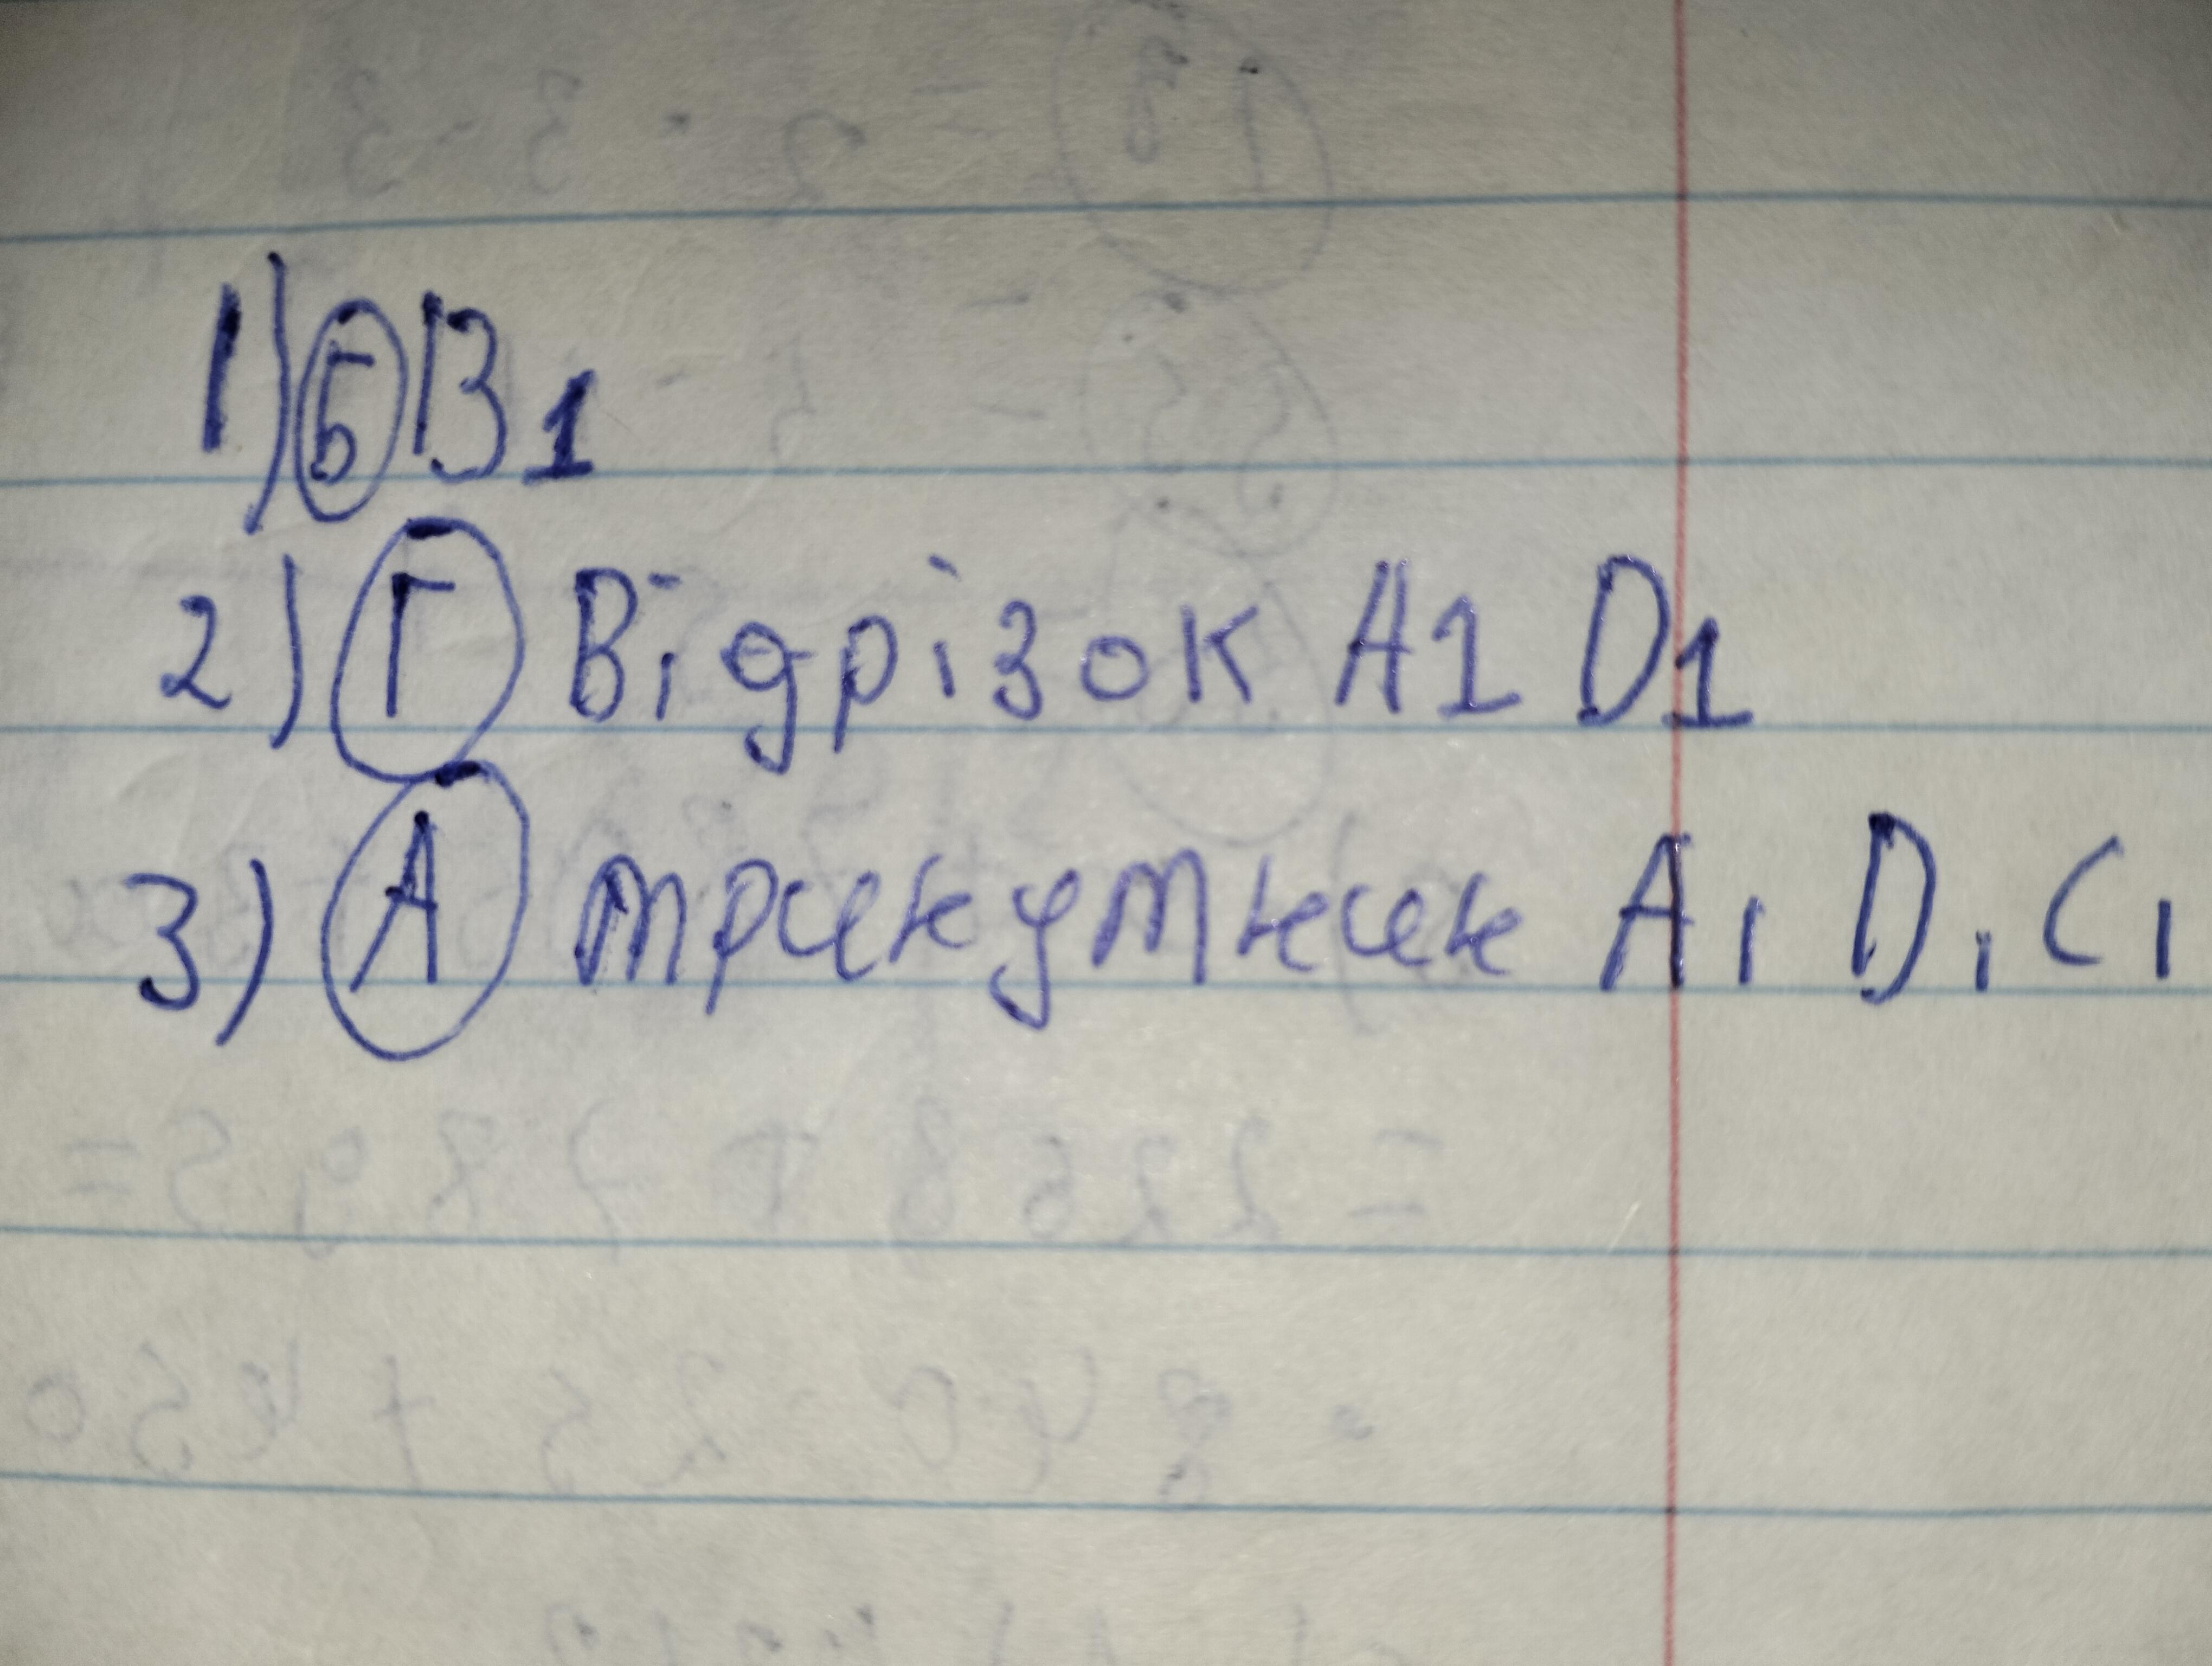 1) Б B1
2) Г Відрізок A1 D1
3) А трикутник A1 D1 C1